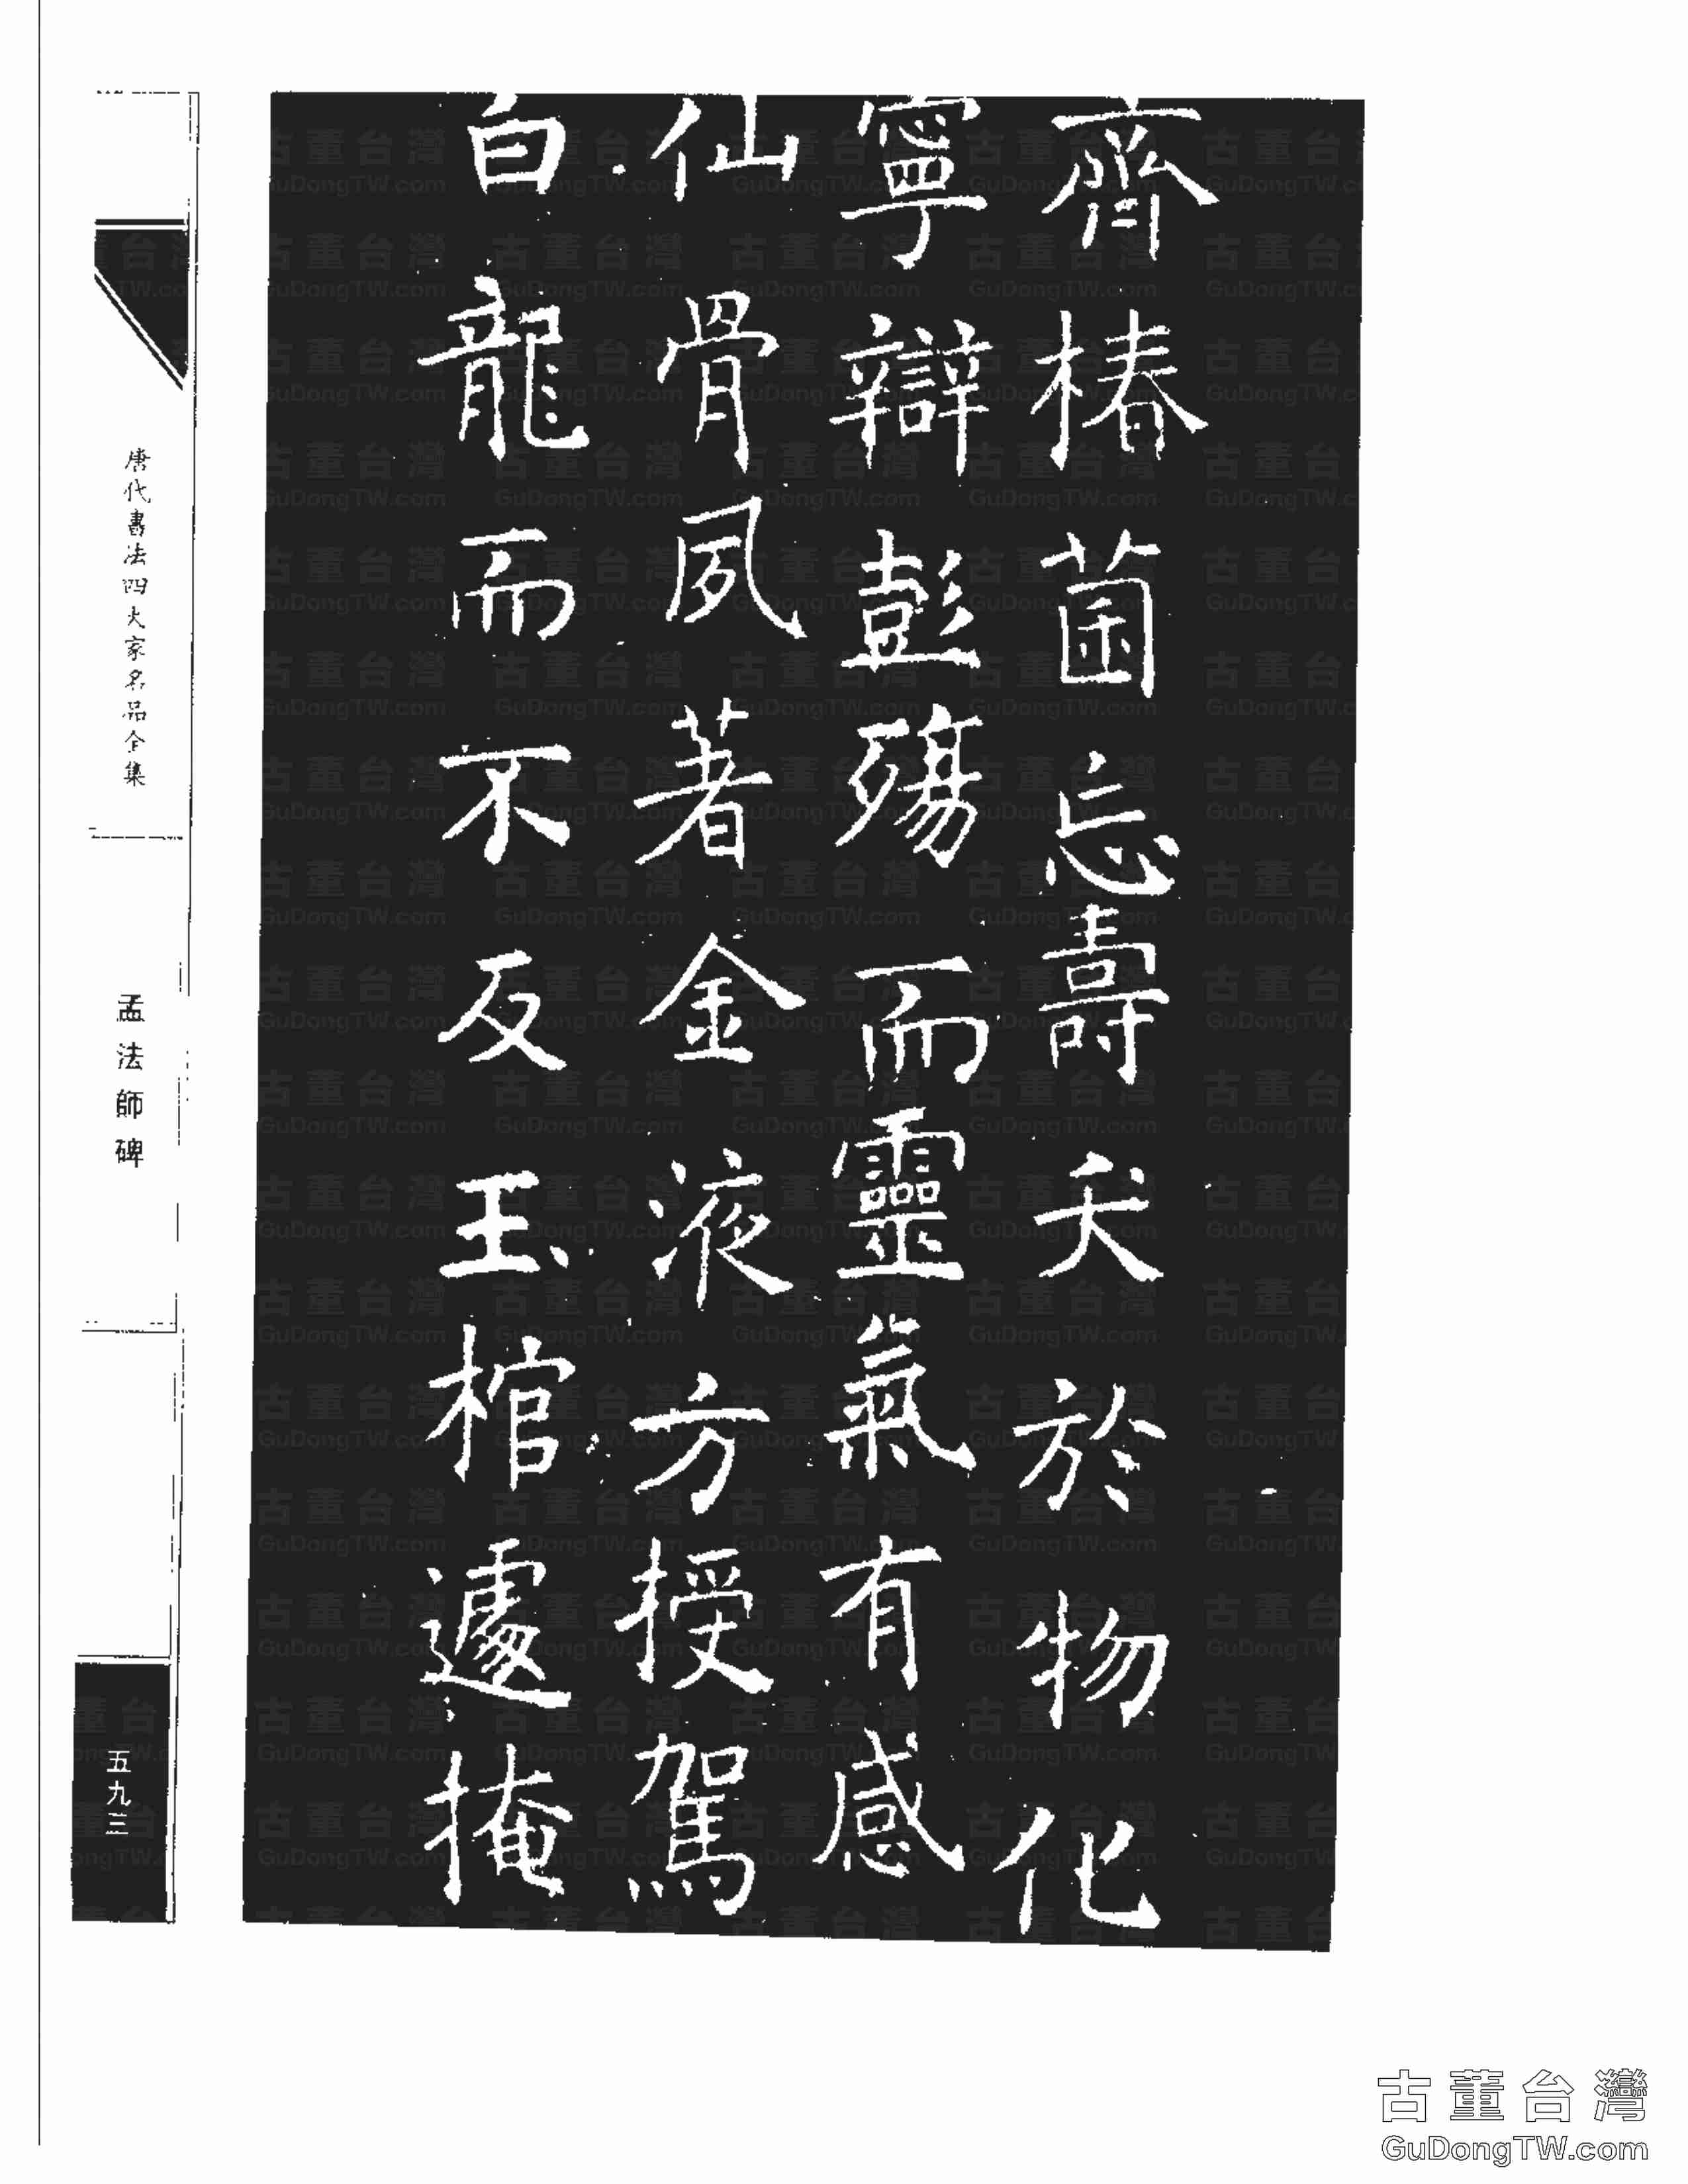 齊椿菌忘壽夭於物化
寧辯彭殤而靈氣有感
仙骨夙著金液方授駕
白龍而不反玉棺遽掩
唐代書法四大家名品全集
孟法師碑
五九三
古董台灣
GuDongTW.com